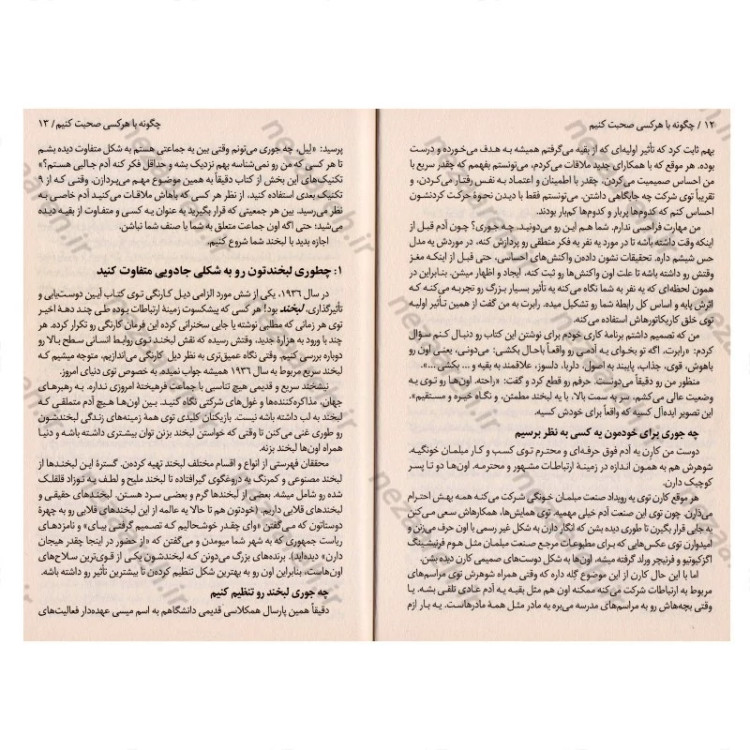 ۱۲ / چگونه با هرکسی صحبت کنیم
بهم ثابت کرد که تأثیر اولیه‌ای که از بقیه می‌گرفتم همیشه به هدف می‌خورده و درست
بوده. هر موقع که با همکارای جدید ملاقات می‌کردم، می‌تونستم بفهمم که چقدر سریع با
من احساس صمیمیت می‌کردن، چقدر با اطمینان و اعتماد به نفس رفتار می‌کردن، و
تقریباً توی شرکت چه جایگاهی داشتن. می‌تونستم فقط با دیدن نحوۀ حرکت کردنشون
احساس کنم که کدوم‌ها پربار و کدوم‌ها کم‌بار بودند.
من مهارت فراحسی ندارم. شما هم این رو می‌دونید. چه‌جوری؟ چون آدم قبل از
اینکه وقت داشته باشه تا در مورد یه نفر یه فکر منطقی رو پردازش کنه، در موردش یه مدل
حس شیشم داره. تحقیقات نشون داده‌ن واکنش‌های احساسی، حتی قبل از اینکه مغز
وقتش رو داشته باشه تا علت اون واکنش‌ها رو ثبت کنه، ایجاد و اظهار میشن. بنابراین در
همون لحظه‌ای که یه نفر به شما نگاه می‌کنه یه تأثیر بسیار بزرگ رو تجربه می‌کنه که
اثرش پایه و اساس کل رابطۀ شما رو تشکیل میده. رابرت به من گفت از همین تأثیر اولیه
توی خلق کاریکاتورهاش استفاده می‌کنه.
من که تصمیم داشتم برنامۀ کاری خودم برای نوشتن این کتاب رو دنبال کنم سؤال
کردم: «رابرت، اگه تو بخوای یه آدمی رو واقعاً باحال بکشی؛ می‌دونی، یعنی اون رو
باهوش، قوی، جذاب، پایبند به اصول، دلربا، دلسوز، علاقمند به بقیه و … بکشی …».
منظور من رو دقیقاً می‌دونست. حرفم رو قطع کرد و گفت: «راحته. اون‌ها رو توی یه
وضعیت عالی می‌کشم. سر به سمت بالا، با یه لبخند مطمئن، و نگاه خیره و مستقیم».
این تصویر ایده‌آل کسیه که واقعاً برای خودش کسیه.
چه جوری برای خودمون یه کسی به نظر برسیم
دوست من کارِن یه آدم فوق حرفه‌ای و محترم توی کسب و کار مبلمان خونگیه.
شوهرش هم به همون اندازه در زمینۀ ارتباطات مشهور و محترمه. اون‌ها دو تا پسر
کوچیک دارن.
هر موقع کارن توی یه رویداد صنعت مبلمان خونگی شرکت می‌کنه همه بهش احترام
می‌ذارن. چون توی این صنعت آدم خیلی مهمیه. توی همایش‌ها، همکارهاش سعی می‌کنن
یه جایی قرار بگیرن تا طوری دیده بشن که انگار دارن به شکل غیر رسمی با اون حرف می‌زنن و
امیدوارن توی عکس‌هایی که برای مطبوعات مرجع صنعت مبلمان مثل هوم فرنیشینگ
اگزکیوتیو و فرنیچر ورلد گرفته میشه اون‌ها به شکل دوست‌های صمیمی کارن دیده بشن.
اما با این حال کارن از این موضوع گِله داره که وقتی همراه شوهرش توی مراسم‌های
مربوط به ارتباطات شرکت می‌کنه ممکنه اون هم مثل بقیه یه آدم عادی تلقی بشه. یا
وقتی بچه‌هاش رو به مراسم‌های مدرسه می‌بره یه مادر مثل همۀ مادرهاست. یه بار ازم
چگونه با هرکسی صحبت کنیم / ۱۳
پرسید: «لیل، چه جوری می‌تونم وقتی بین یه جماعتی هستم به شکل متفاوت دیده بشم
تا هر کسی که من رو نمی‌شناسه بهم نزدیک بشه و حداقل فکر کنه آدم جالبی هستم؟»
تکنیک‌های این بخش از کتاب دقیقاً به همین موضوع مهم می‌پردازن. وقتی که از ۹
تکنیک بعدی استفاده کنید، از نظر هر کسی که باهاش ملاقات می‌کنید آدم خاصی به
نظر می‌رسید. بین هر جمعیتی که قرار بگیرید به عنوان یه کسی و متفاوت از بقیه دیده
می‌شید؛ حتی اگه اون جماعت متعلق به شما یا صنف شما نباشن.
اجازه بدید با لبخند شما شروع کنیم.
۱: چطوری لبخندتون رو به شکلی جادویی متفاوت کنید
در سال ۱۹۳۶، یکی از شش مورد الزامی دیل کارنگی توی کتاب آیین دوست‌یابی و
تأثیرگذاری، لبخند بود! هر کسی که پیشکسوت زمینۀ ارتباطات بوده طی چند دهۀ اخیر
توی هر زمانی که مطلبی نوشته یا جایی سخنرانی کرده این فرمان کارنگی رو تکرار کرده. هر
چند با ورود به هزارۀ جدید، وقتش رسیده که نقش لبخند توی روابط انسانی سطح بالا رو
دوباره بررسی کنیم. وقتی نگاه عمیق‌تری به نظر دیل کارنگی می‌اندازیم، متوجه میشیم که
لبخند سریع مربوط به سال ۱۹۳۶ همیشه جواب نمیده. به خصوص توی دنیای امروز.
نیشخند سریع و قدیمی هیچ تناسبی با جماعت فرهیختۀ امروزی نداره. به رهبرهای
جهان، مذاکره‌کننده‌ها و غول‌های شرکتی نگاه کنید. با بین اون‌ها هیچ آدم متملقی که
لبخند به لب داشته باشه نیست. بازیکنان کلیدی توی همۀ زمینه‌های زندگی لبخندشون
رو طوری غنی می‌کنن تا وقتی که خواستن لبخند بزنن توان بیشتری داشته باشه، و دنیا
همراه اون‌ها لبخند بزنه.
محققان فهرستی از انواع و اقسام مختلف لبخند تهیه کرده‌ن. گسترۀ این لبخندها از
لبخند مصنوعی و کمرنگ یه دروغگوی گیرافتاده تا لبخند ملیح و لطف یه نوزاد قلقلک
شده رو شامل میشه. بعضی از لبخندها گرم و بعضی سرد هستن. لبخندهای حقیقی و
لبخندهای قلابی داریم. (خودتون هم تا حالا یه عالمه از این لبخندهای قلابی رو به چهرۀ
دوستاتون که می‌گفتن «وای چقدر خوشحالیم که تصمیم گرفتی بیای» و نامزدهای
ریاست جمهوری که به شهر شما میومدن و می‌گفتن که «از حضور در اینجا چقدر هیجان
دارن» دیده‌اید). برنده‌های بزرگ می‌دونن که لبخندشون یکی از قوی‌ترین سلاح‌های
اون‌هاست، بنابراین اون رو به بهترین شکل تنظیم کرده‌ن تا بیشترین تأثیر رو داشته باشه.
چه جوری لبخند رو تنظیم کنیم
دقیقاً همین پارسال همکلاسی قدیمی دانشگاهم به اسم میسی عهده‌دار فعالیت‌های
nezarah.ir